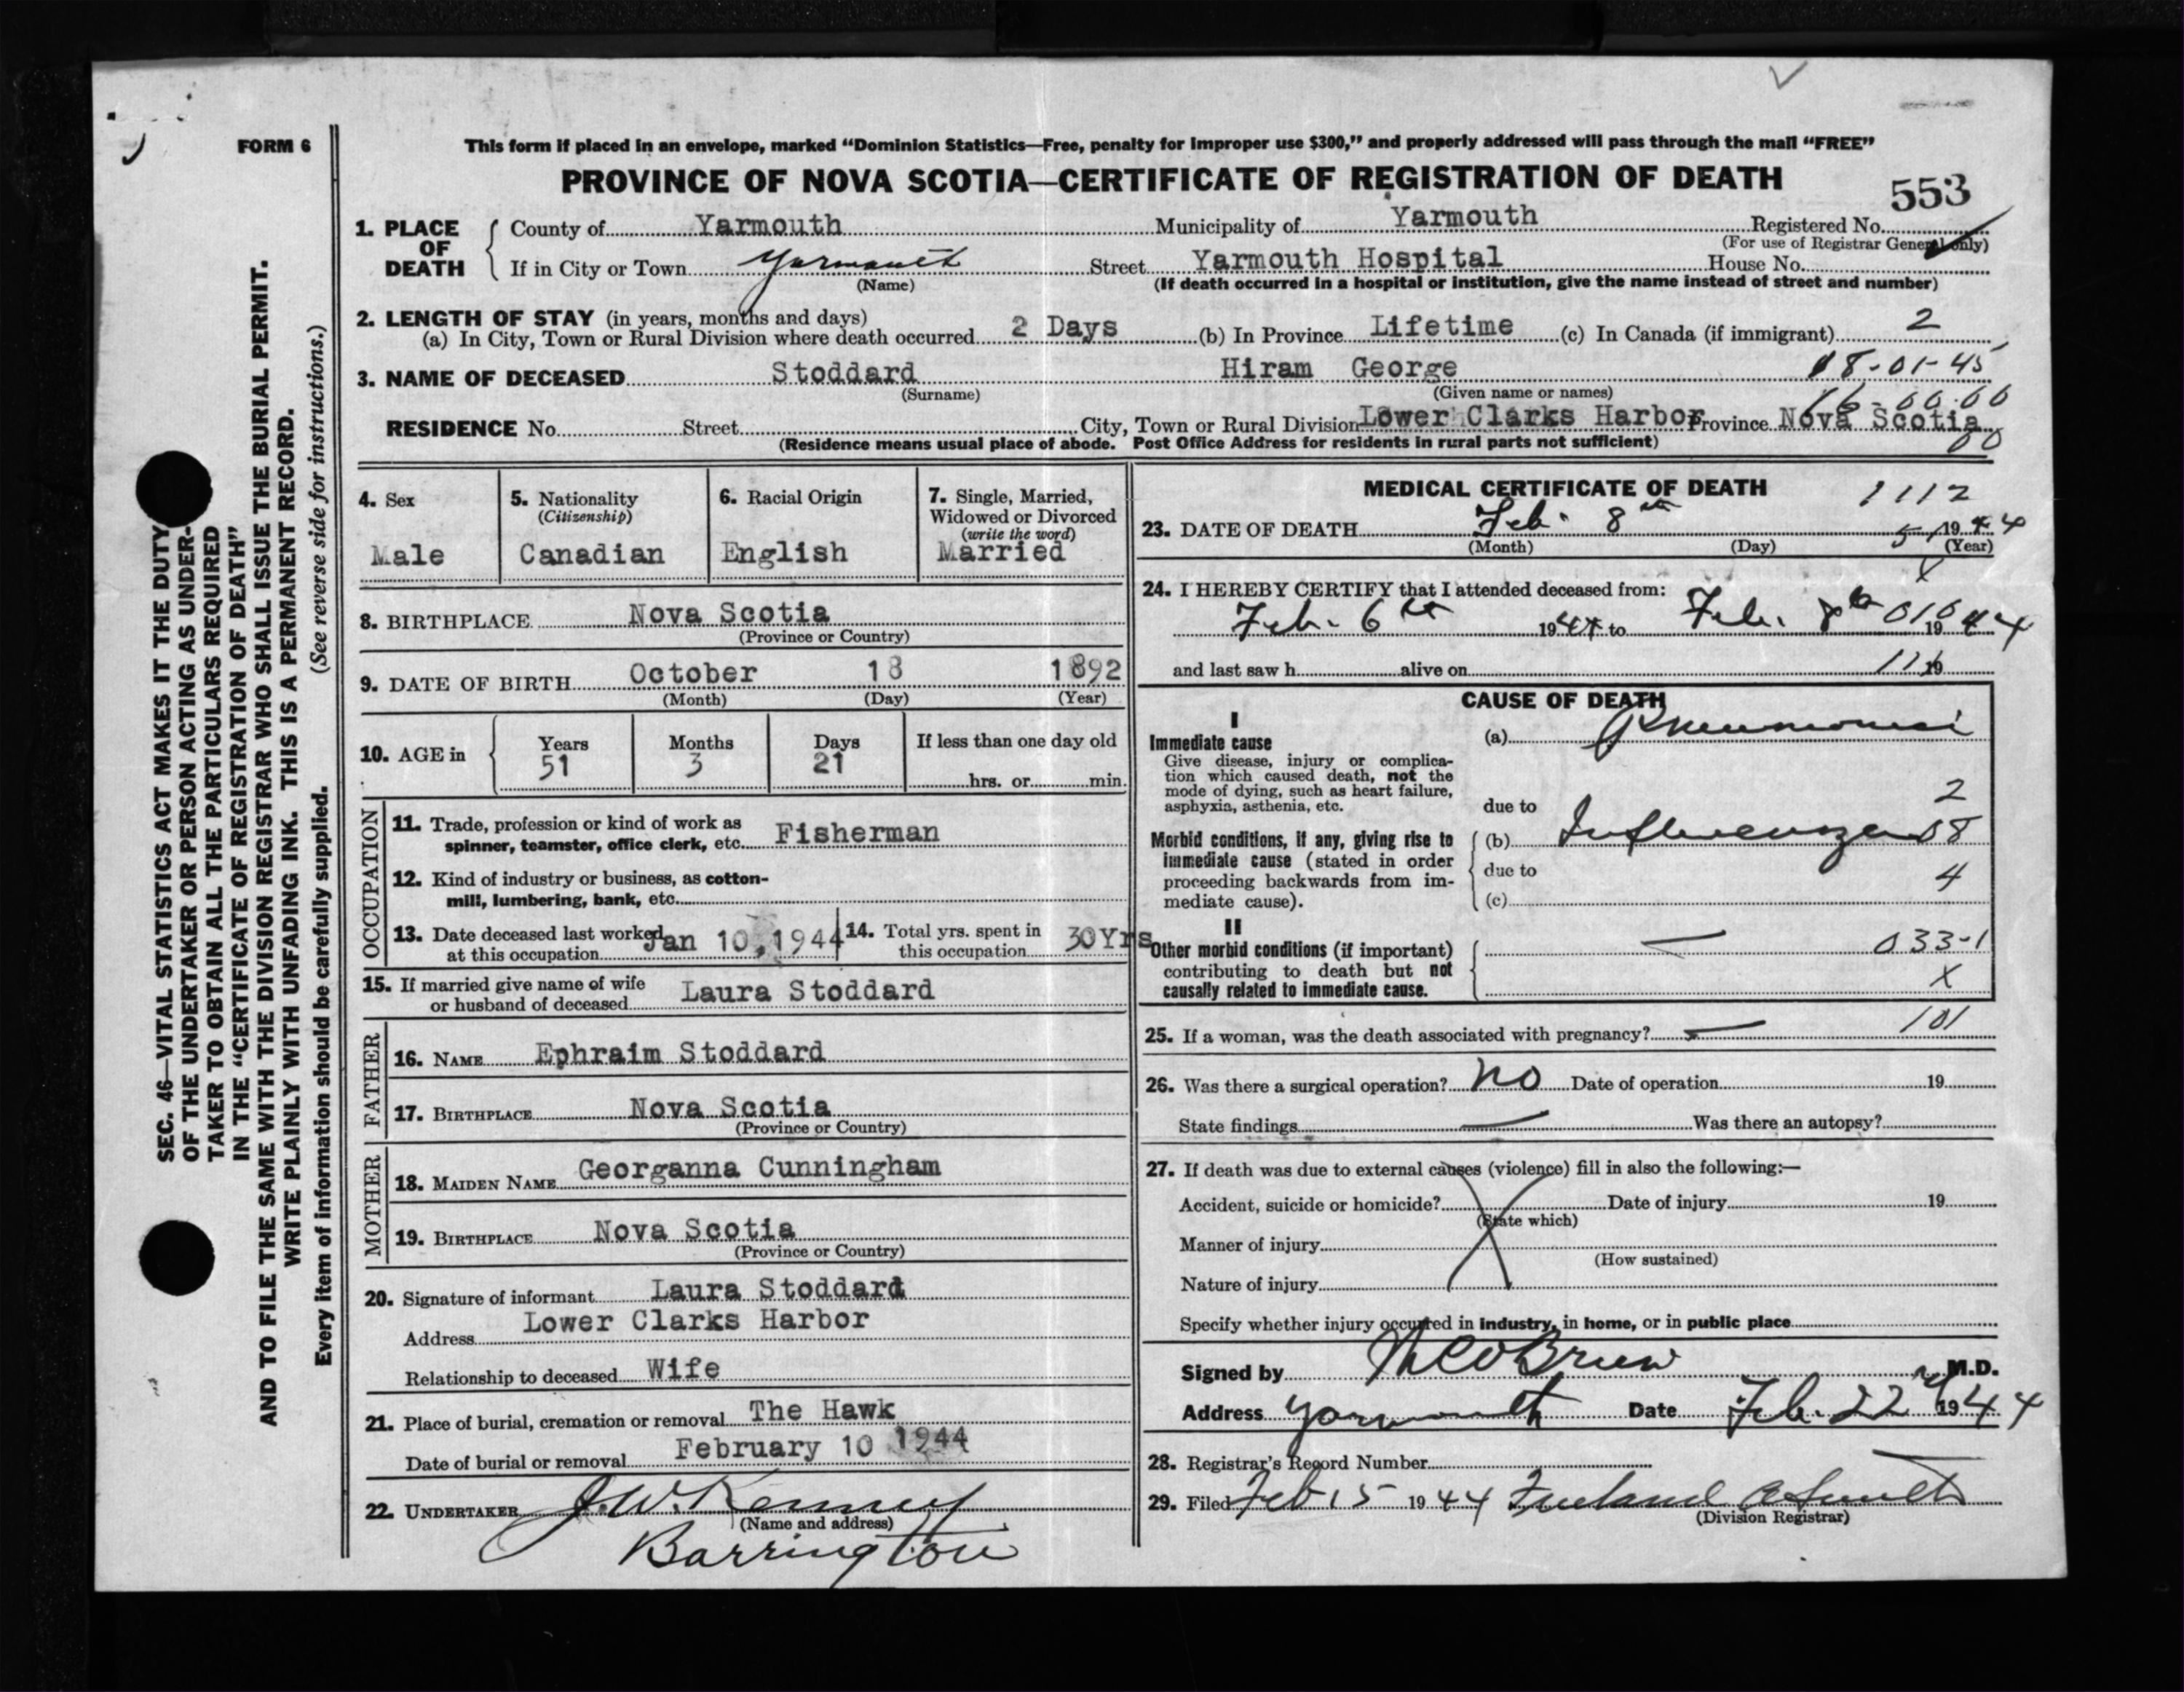 FORM 6
This form if placed in an envelope, marked “Dominion Statistics—Free, penalty for improper use $300,” and properly addressed will pass through the mail “FREE”
PROVINCE OF NOVA SCOTIA—CERTIFICATE OF REGISTRATION OF DEATH
553
1. PLACE OF DEATH
County of Yarmouth Municipality of Yarmouth Registered No.
(For use of Registrar General only)
If in City or Town Yarmouth Street Yarmouth Hospital House No.
(Name) (If death occurred in a hospital or institution, give the name instead of street and number)
2. LENGTH OF STAY (in years, months and days)
(a) In City, Town or Rural Division where death occurred 2 Days (b) In Province Lifetime (c) In Canada (if immigrant) 2
18-01-45
3. NAME OF DECEASED Stoddard Hiram George
(Surname) (Given name or names)
16-00.00
RESIDENCE No. Street City, Town or Rural Division Lower Clarks Harbor Province Nova Scotia
(Residence means usual place of abode. Post Office Address for residents in rural parts not sufficient) 00
4. Sex
Male
5. Nationality
(Citizenship)
Canadian
6. Racial Origin
English
7. Single, Married,
Widowed or Divorced
(write the word)
Married
8. BIRTHPLACE Nova Scotia
(Province or Country)
9. DATE OF BIRTH October 18 1892
(Month) (Day) (Year)
10. AGE in
Years Months Days If less than one day old
51 3 21
hrs. or min.
OCCUPATION
11. Trade, profession or kind of work as
spinner, teamster, office clerk, etc. Fisherman
12. Kind of industry or business, as cotton-
mill, lumbering, bank, etc.
13. Date deceased last worked
at this occupation Jan 10, 1944
14. Total yrs. spent in
this occupation 30Yrs
15. If married give name of wife
or husband of deceased Laura Stoddard
FATHER
16. NAME Ephraim Stoddard
17. BIRTHPLACE Nova Scotia
(Province or Country)
MOTHER
18. MAIDEN NAME Georganna Cunningham
19. BIRTHPLACE Nova Scotia
(Province or Country)
20. Signature of informant Laura Stoddard
Address Lower Clarks Harbor
Relationship to deceased Wife
21. Place of burial, cremation or removal The Hawk
Date of burial or removal February 10 1944
22. UNDERTAKER J.W. Kenney
(Name and address)
Barrington
MEDICAL CERTIFICATE OF DEATH
1112
23. DATE OF DEATH Feb. 8th 1944
(Month) (Day) (Year)
24. I HEREBY CERTIFY that I attended deceased from:
Feb. 6th 1944 to Feb. 8th 1944
and last saw h alive on 19
CAUSE OF DEATH
I
Immediate cause
Give disease, injury or complica-
tion which caused death, not the
mode of dying, such as heart failure,
asphyxia, asthenia, etc.
(a) Pneumonia
due to
2
Morbid conditions, if any, giving rise to
immediate cause (stated in order
proceeding backwards from im-
mediate cause).
(b) Influenza 08
due to
4
(c)
II
Other morbid conditions (if important)
contributing to death but not
causally related to immediate cause.
— 033-1
X
25. If a woman, was the death associated with pregnancy? — 101
26. Was there a surgical operation? No Date of operation 19
State findings — Was there an autopsy?
27. If death was due to external causes (violence) fill in also the following:—
Accident, suicide or homicide? Date of injury 19
(State which)
Manner of injury
(How sustained)
Nature of injury
Specify whether injury occurred in industry, in home, or in public place
Signed by O'Brien M.D.
Address Yarmouth Date Feb. 22nd 1944
28. Registrar's Record Number
29. Filed Feb 15 1944 Smith
(Division Registrar)
SEC. 46—VITAL STATISTICS ACT MAKES IT THE DUTY
OF THE UNDERTAKER OR PERSON ACTING AS UNDER-
TAKER TO OBTAIN ALL THE PARTICULARS REQUIRED
IN THE “CERTIFICATE OF REGISTRATION OF DEATH”
AND TO FILE THE SAME WITH THE DIVISION REGISTRAR WHO SHALL ISSUE THE BURIAL PERMIT.
WRITE PLAINLY WITH UNFADING INK. THIS IS A PERMANENT RECORD.
Every item of information should be carefully supplied. (See reverse side for instructions.)